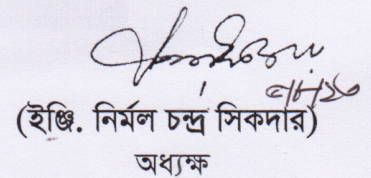 (ইঞ্জি. নির্মল চন্দ্র সিকদার)
অধ্যক্ষ